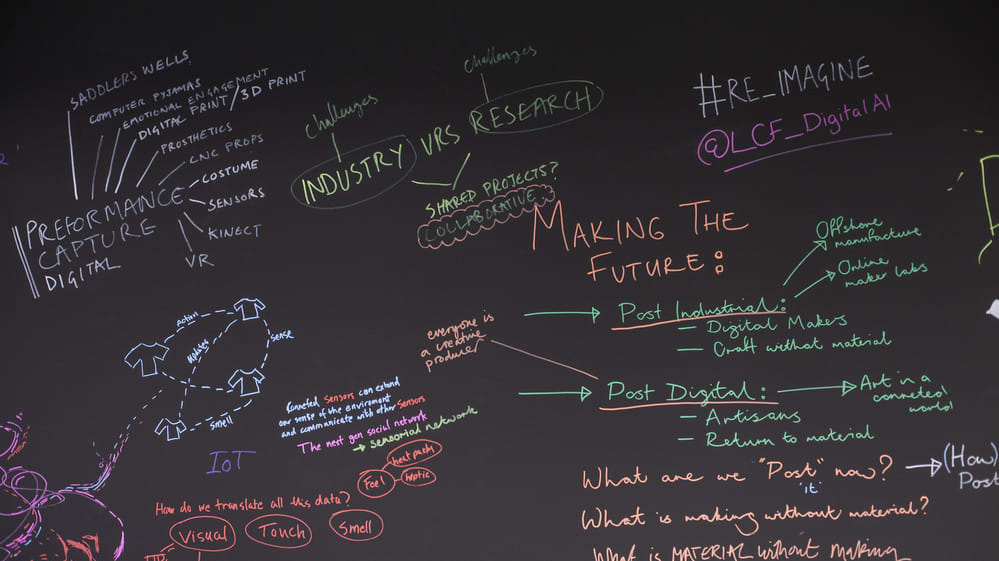 SADDLERS WELLS
COMPUTER PYJAMAS
EMOTIONAL ENGAGEMENT
DIGITAL PRINT / 3D PRINT
PROSTHETICS
CNC PROPS
COSTUME
SENSORS
KINECT
VR
PREFORMANCE
CAPTURE
DIGITAL
challenges
challenges
INDUSTRY VRS RESEARCH
SHARED PROJECTS?
COLLABORATIVE
#RE_IMAGINE
@LCF_DigitalAI
MAKING THE
FUTURE:
Offshore
manufacture
Online
maker labs
Post Industrial:
– Digital Makers
– Craft without material
everyone is
a creative
producer
Post Digital:
– Artisans
– Return to material
Art in a
conneted
world
What are we "Post" now?
'it'
(How)
Post
What is making without material?
What is MATERIAL without making
action
updates
sense
smell
IoT
Conneted Sensors can extend
our sense of the enviroment
and communicate with other Sensors
The next gen social network
→ sensorial network
Feel
heat packs
haptic
How do we translate all this data?
Visual
Touch
Smell